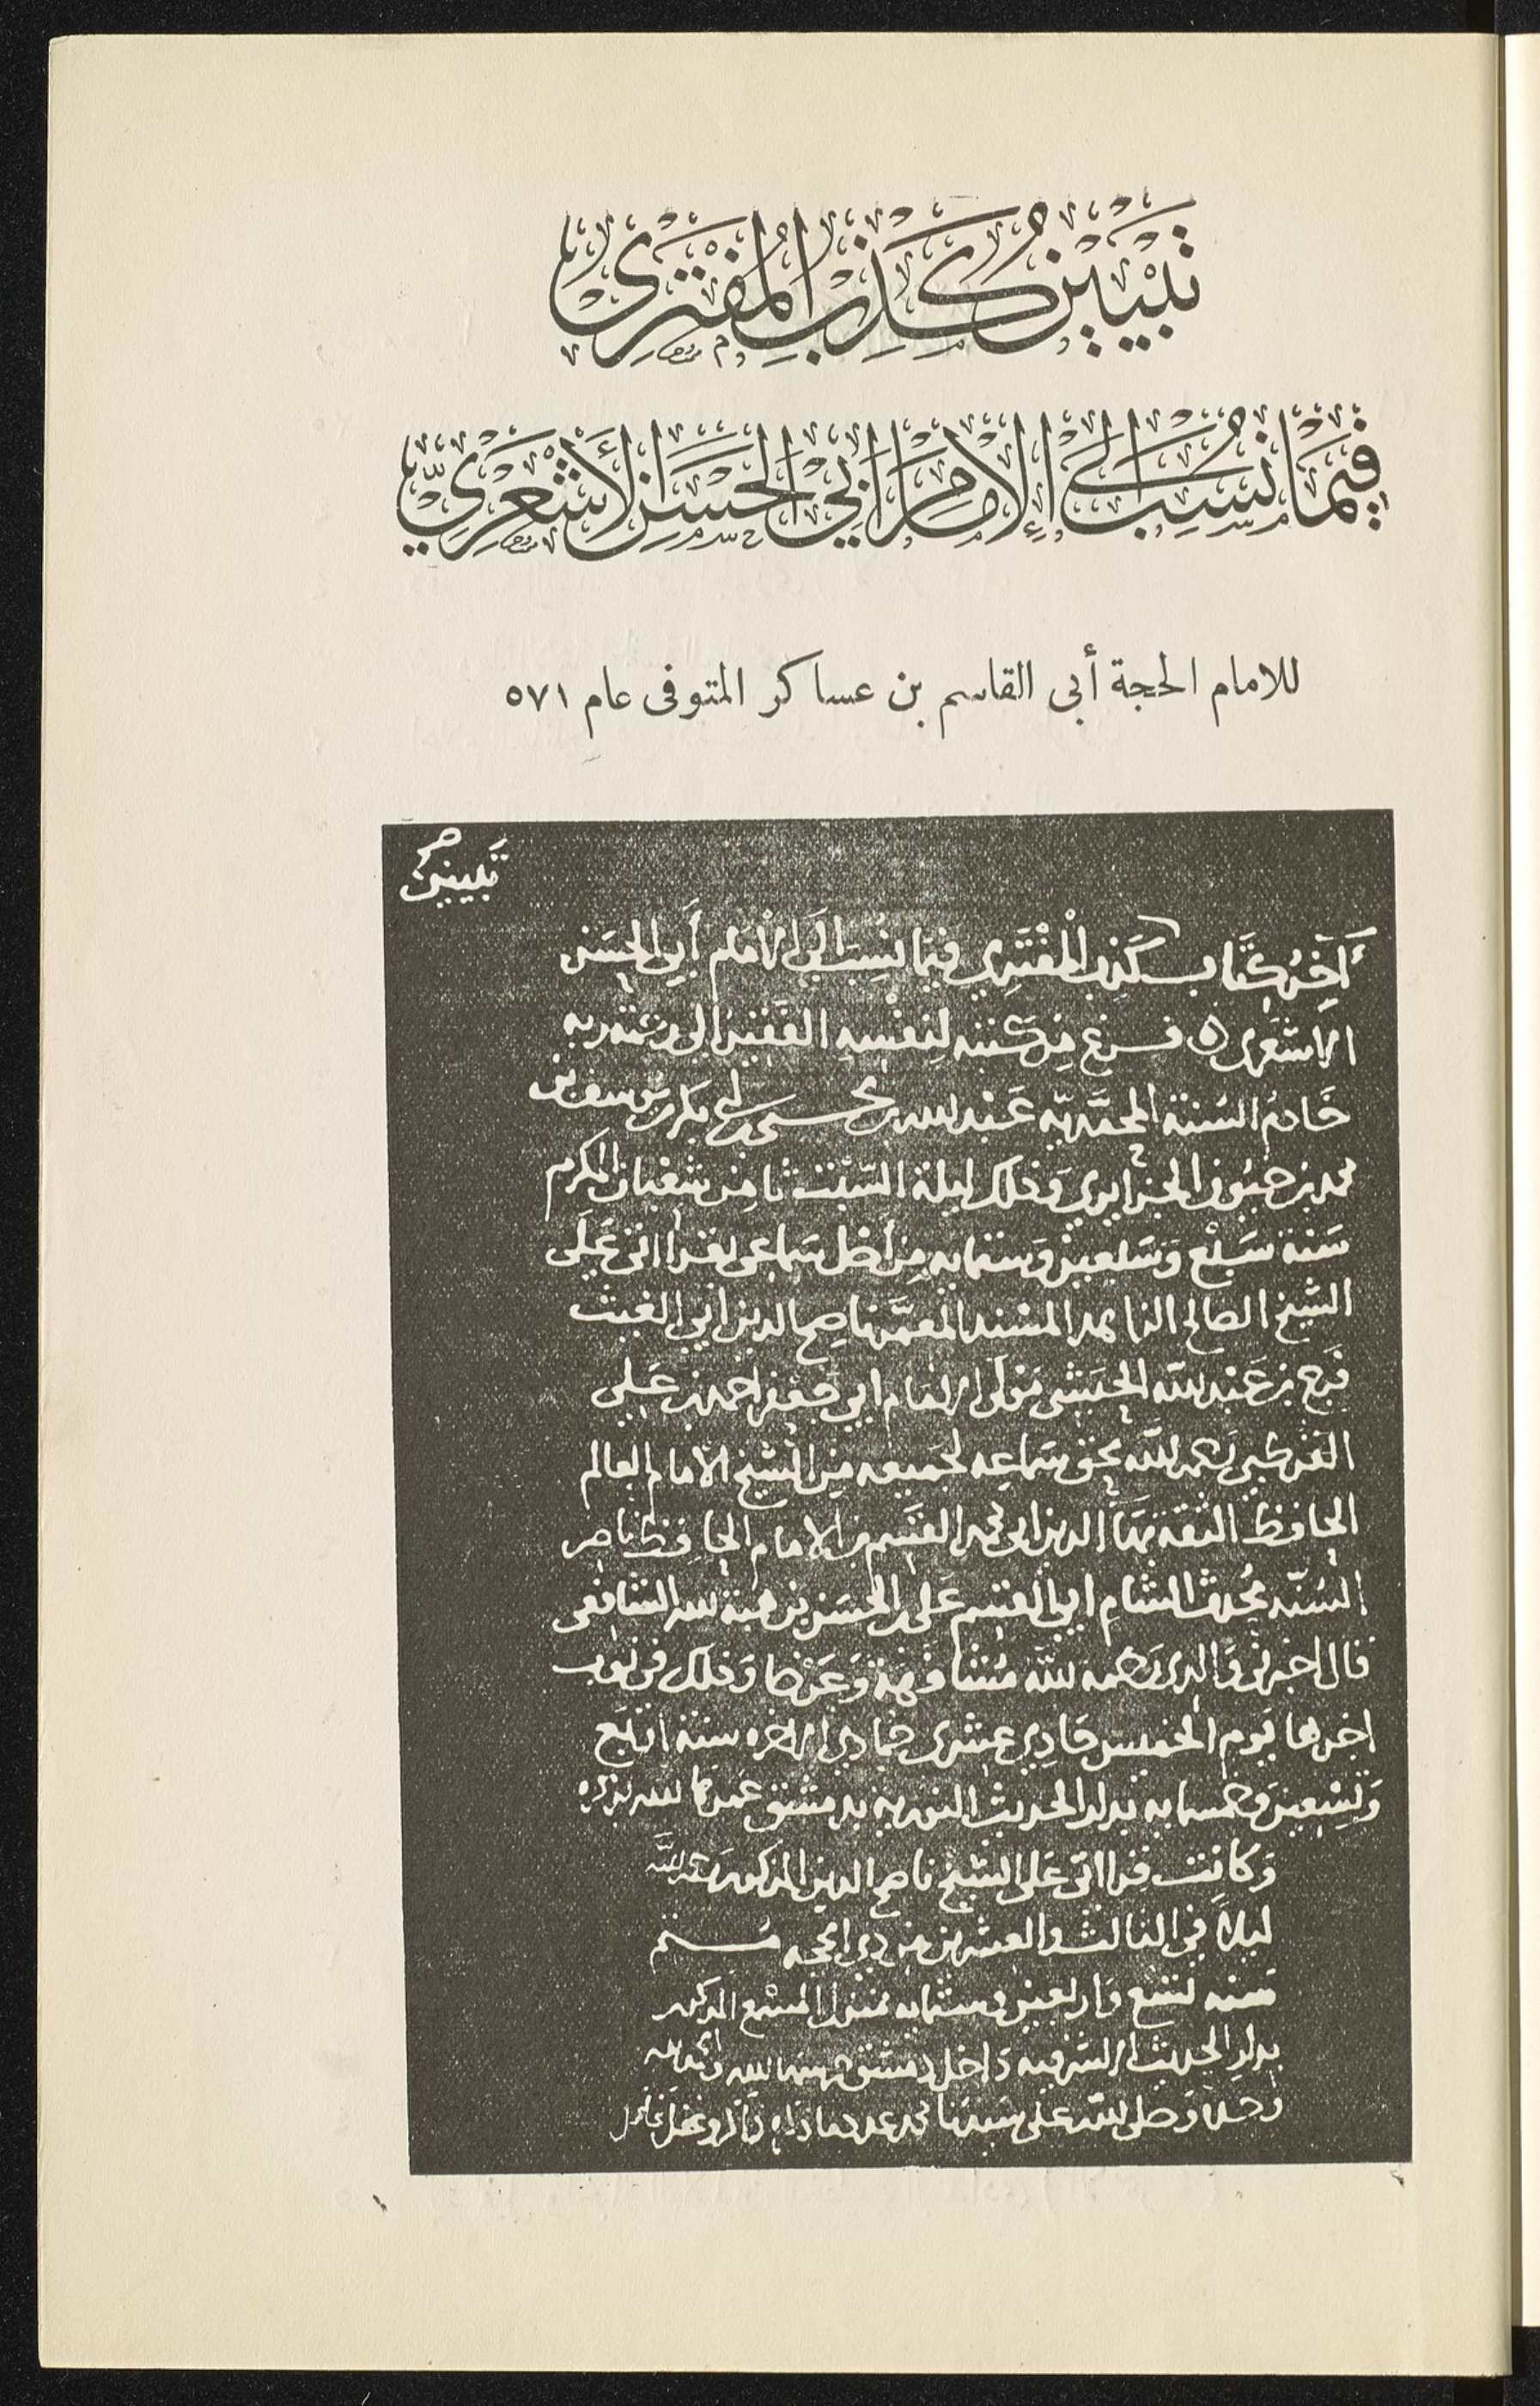 تَبْيِينُ كَذِبِ المُفْتَرِى
فِيمَا نُسِبَ إِلَى الإِمَامِ أَبِي الحَسَنِ الأَشْعَرِيِّ
للامام الحجة أبى القاسم بن عساكر المتوفى عام ٥٧١
تبيين
آخر كتاب كذب المفتري فيما نسب الى الامام أبي الحسن
الاشعرى فرغ من كتبه لنفسه الفقير الى رحمة ربه
خادم السنة المحمدية عبد الله بن يحيى بن ابي بكر بن يوسف بن
محمد بن حيون الجزايري وذلك ليلة السبت ثامن شعبان المكرم
سنة سبع وسبعين وستمايه من أصل سماعى بقرااتى على
الشيخ الصالح الزاهد المسند المعمر ناصح الدين أبي الغيث
فرج بن عبد الله الحبشى مولى الامام ابي جعفر احمد بن علي
القرطبي رحمه الله بحق سماعه لجميعه من الشيخ الامام العالم
الحافظ الثقة بهاء الدين ابى محمد القسم بن الامام الحافظ ناصر
السنة محدث الشام ابي القسم على بن الحسن بن هبة الله الشافعى
قال اخبرنى والدى رحمه الله مشافهة وعرضا وذلك فى نوب
اخرها يوم الخميس حادي عشرى جمادي الاخره سنة اربع
وتسعين وخمسمايه بدار الحديث النوريه بدمشق عمرها الله بذكره
وكانت قرااتى على الشيخ ناصح الدين المذكور رحمه الله
ليلا في الثالث والعشرين من ذي الحجه
سنه تسع واربعين وستمايه بمنزل المسمع المذكور
بدار الحديث الاشرفيه داخل دمشق حرسها الله والحمد لله
وحده وصلى الله على سيدنا محمد عدد ما ذكره الذاكرون وغفل